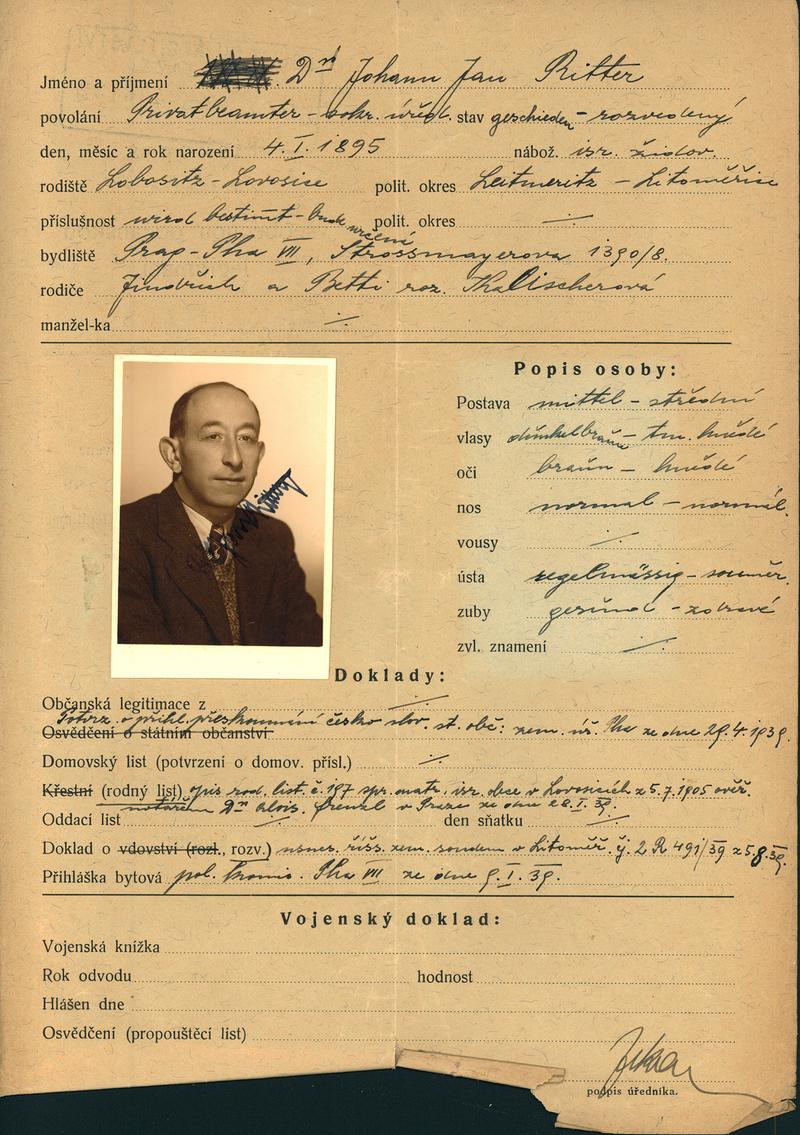 Jméno a příjmení Dr Johann Jan Ritter
povolání Privatbeamter - sokr. úřed. stav geschieden - rozvedený
den, měsíc a rok narození 4. I. 1895 nábož. isr. židov.
rodiště Lobositz - Lovosice polit. okres Leitmeritz - Litoměřice
příslušnost wird bestimt - bude určení polit. okres ·/·
bydliště Prag - Pha VII, Strossmayerova 1390/8.
rodiče Jindřich a Betti roz. Kalischerová
manžel-ka ·/·
Popis osoby:
Postava mittel - střední
vlasy dunkelbraun - tm. hnědé
oči braun - hnědé
nos normal - normál.
vousy ·/·
ústa regelmässig - souměr.
zuby gesund - zdravé
zvl. znamení ·/·
Doklady:
Občanská legitimace z ·/·
Potvrz. o přihl. přezkoumání česko slov. st. obč: zem. úř. Pha ze dne 29.4.1939.
Osvědčení o státním občanství
Domovský list (potvrzení o domov. přísl.) ·/·
Křestní (rodný list) opis rod. list. č. 187 spr. matr. isr. obce v Lovosicích z 5.7.1905 ověř.
notářem Dr Alois. v Praze ze dne 28.I.39.
Oddací list ·/· den sňatku ·/·
Doklad o vdovství (rozl., rozv.) usnes. říšs. zem. soudem v Litoměř. č.j. 2 R 491/39 z 5.8.39.
Přihláška bytová pol. komis. Pha VII ze dne 9.I.39.
Vojenský doklad:
Vojenská knížka
Rok odvodu hodnost
Hlášen dne
Osvědčení (propouštěcí list)
podpis úředníka.